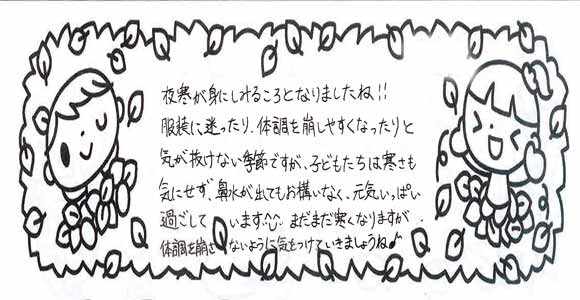 夜寒が身にしみるころとなりましたね!!
服装に迷ったり、体調を崩しやすくなったりと
気が抜けない季節ですが、子どもたちは寒さも
気にせず、鼻水が出てもお構いなく、元気いっぱい
過ごしています。まだまだ寒くなりますが
体調を崩さないように気をつけていきましょうね♪